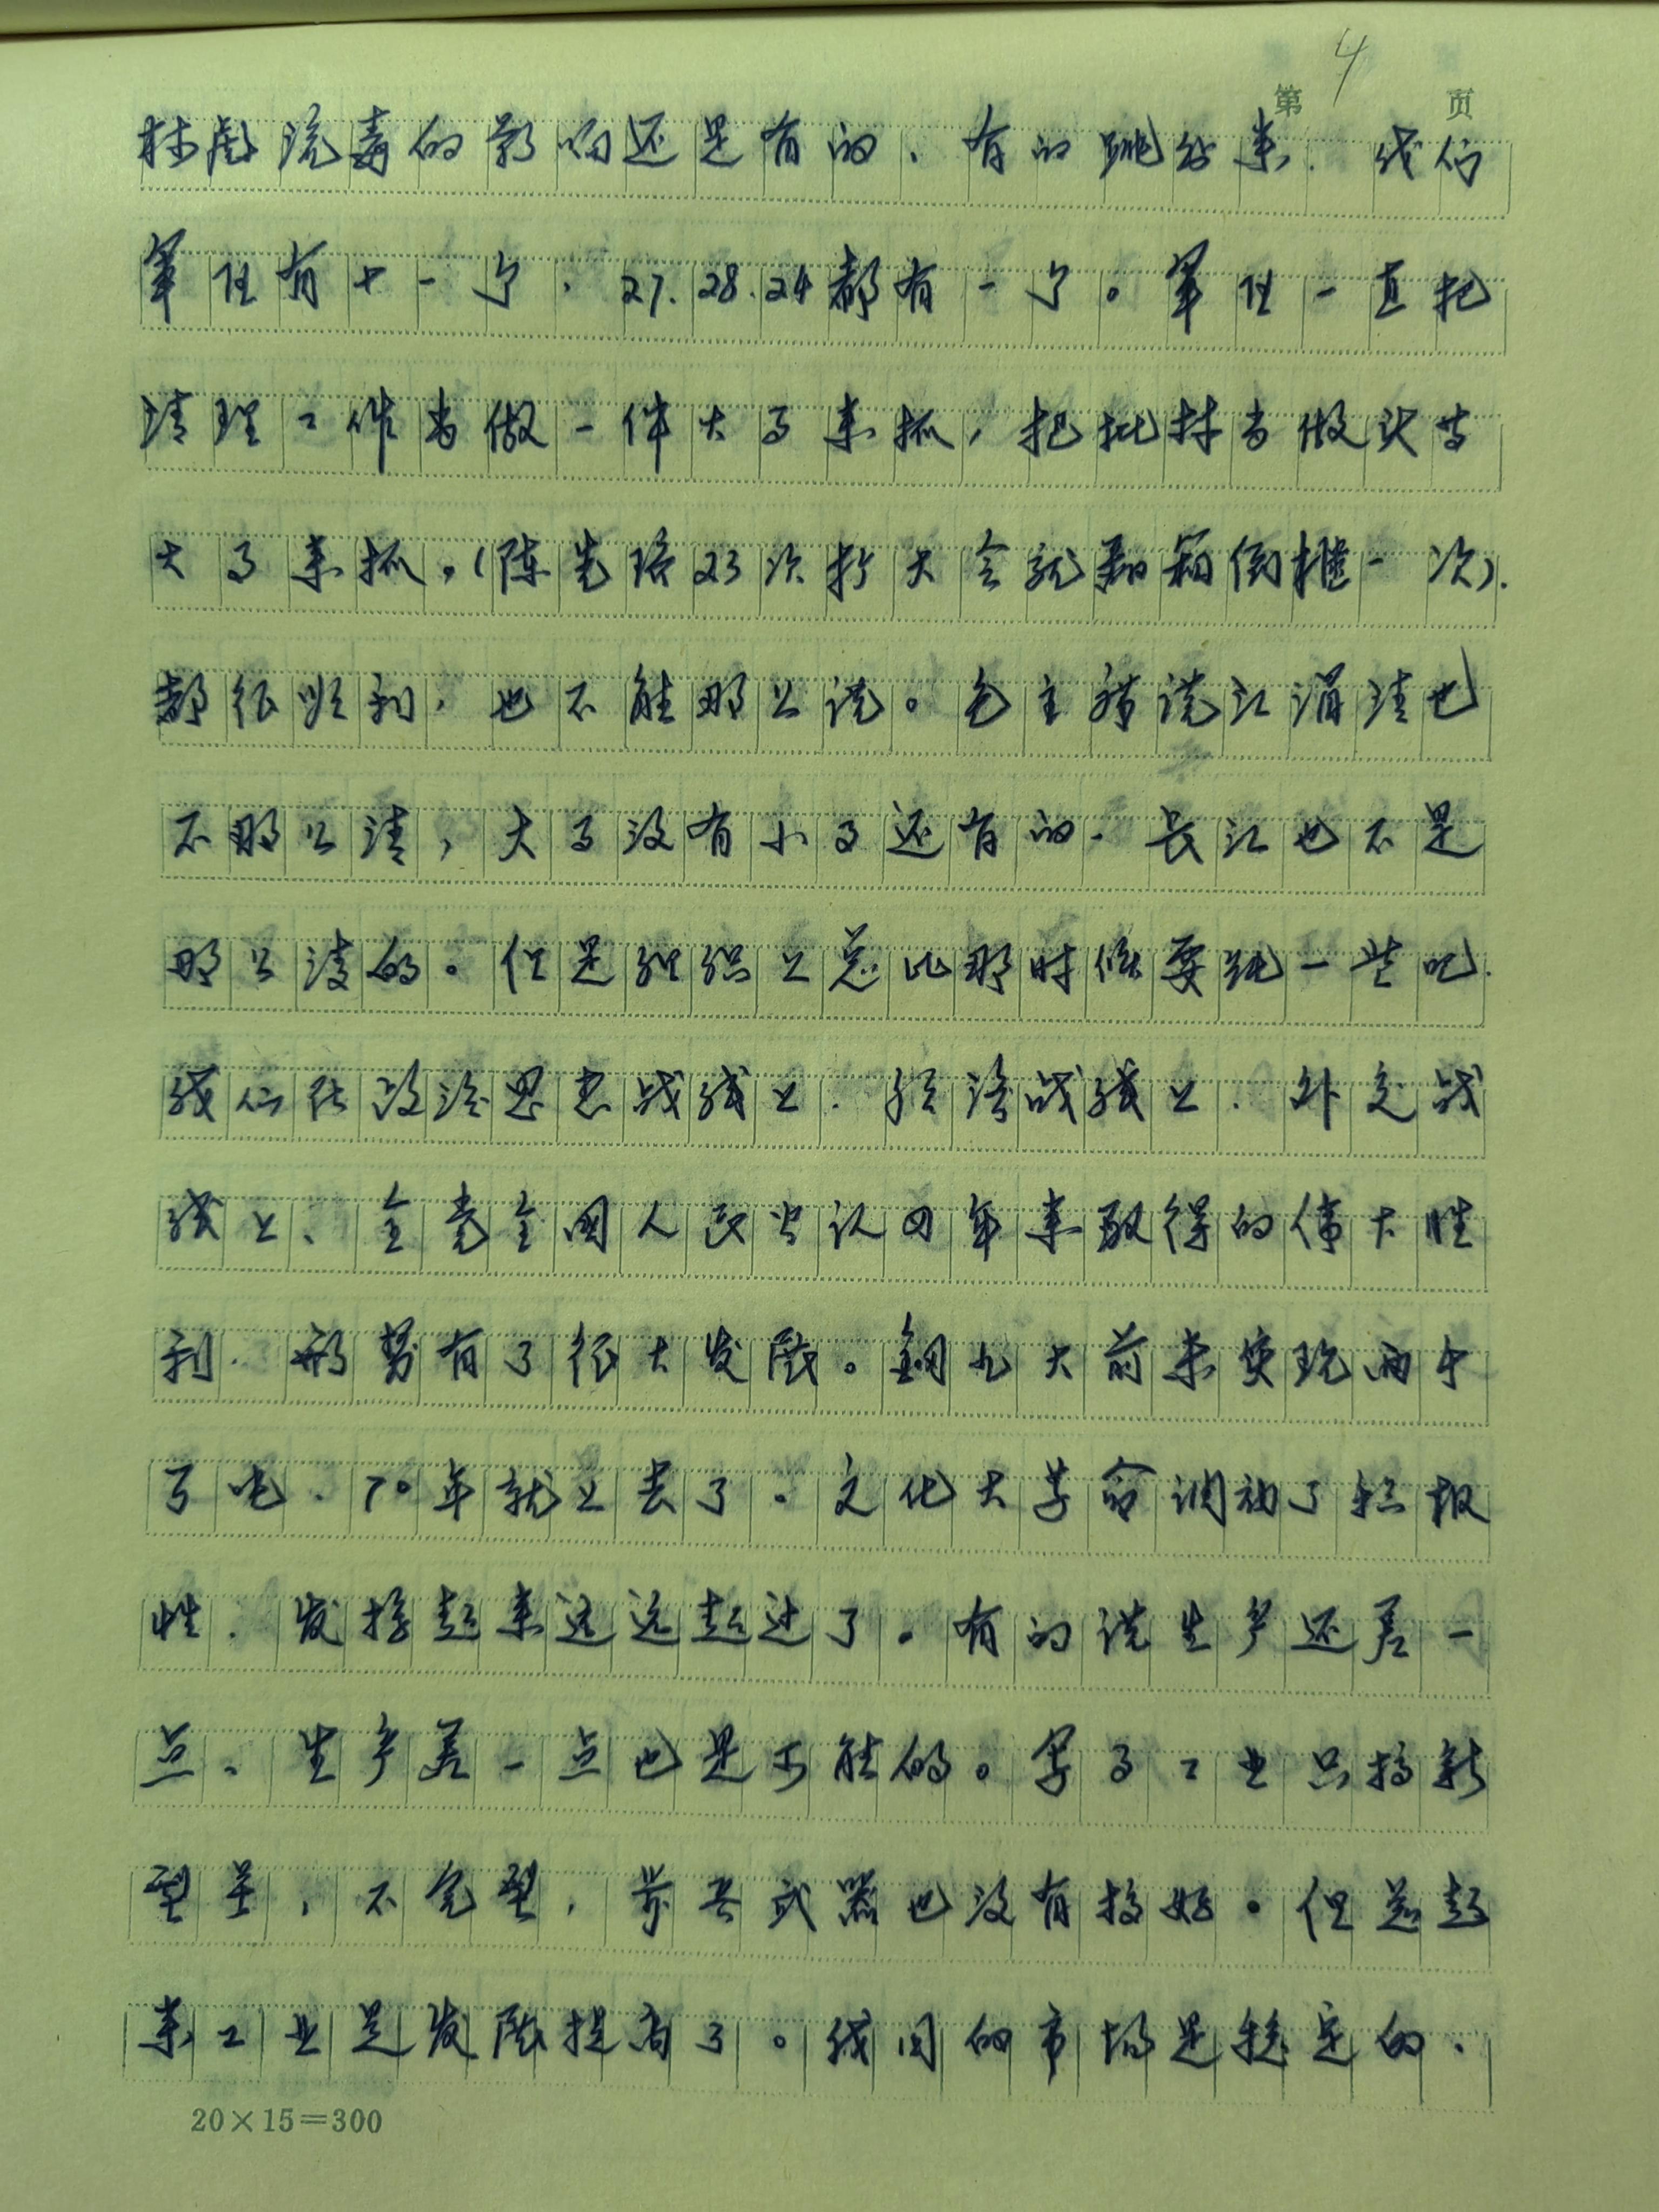 第4页
林彪流毒的影响还是有的、有的跳出来. 我们
军住有十一个, 27.28.24都有一个。军住一直把
清理工作当做一件大事来抓,把批林当做头等
大事来抓。(陈先瑞23次扩大会就翻箱倒柜一次).
都很顺利,也不能那么说。毛主席说江涓清也
不那么清,大事没有小事还有的、长江也不是
那么清的。但是组织上总比那时候要纯一些吧.
我们在政治思想战线上.经济战线上.外交战
线上、全党全国人民公认四年来取得的伟大胜
利.形势有了很大发展。钢九大前未实现两千
万吨、70年就上去了。文化大革命调动了积极
性.发挥起来远远超过了。有的说生产还差一
点、生产差一点也是可能的。军事工业只搞新
型号,不定型,常规武器也没有搞好。但总起
来工业是发展提高了。我国的市场是稳定的、
20×15=300